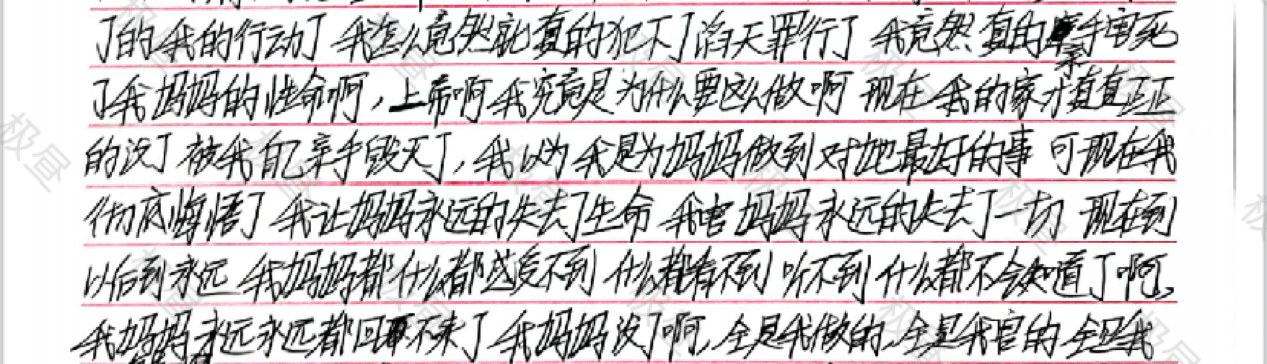 了的我的行动了 我怎么竟然就真的犯下了滔天罪行了 我竟然真的亲手害死
了我妈妈的性命啊，上帝啊我究竟是为什么要这么做啊 现在我的家才真真正正
的没了 被我自己亲手毁灭了，我以为我是为妈妈做到对她最好的事 可现在我
彻底悔悟了 我让妈妈永远的失去了生命 我害妈妈永远的失去了一切 现在到
以后到永远 我妈妈都什么都感受不到 什么都看不到 听不到 什么都不会知道了啊，
我妈妈永远永远都回不来了 我妈妈没了啊，全是我做的，全是我害的 全是我
极昼
极昼
极昼
极昼
极昼
极昼